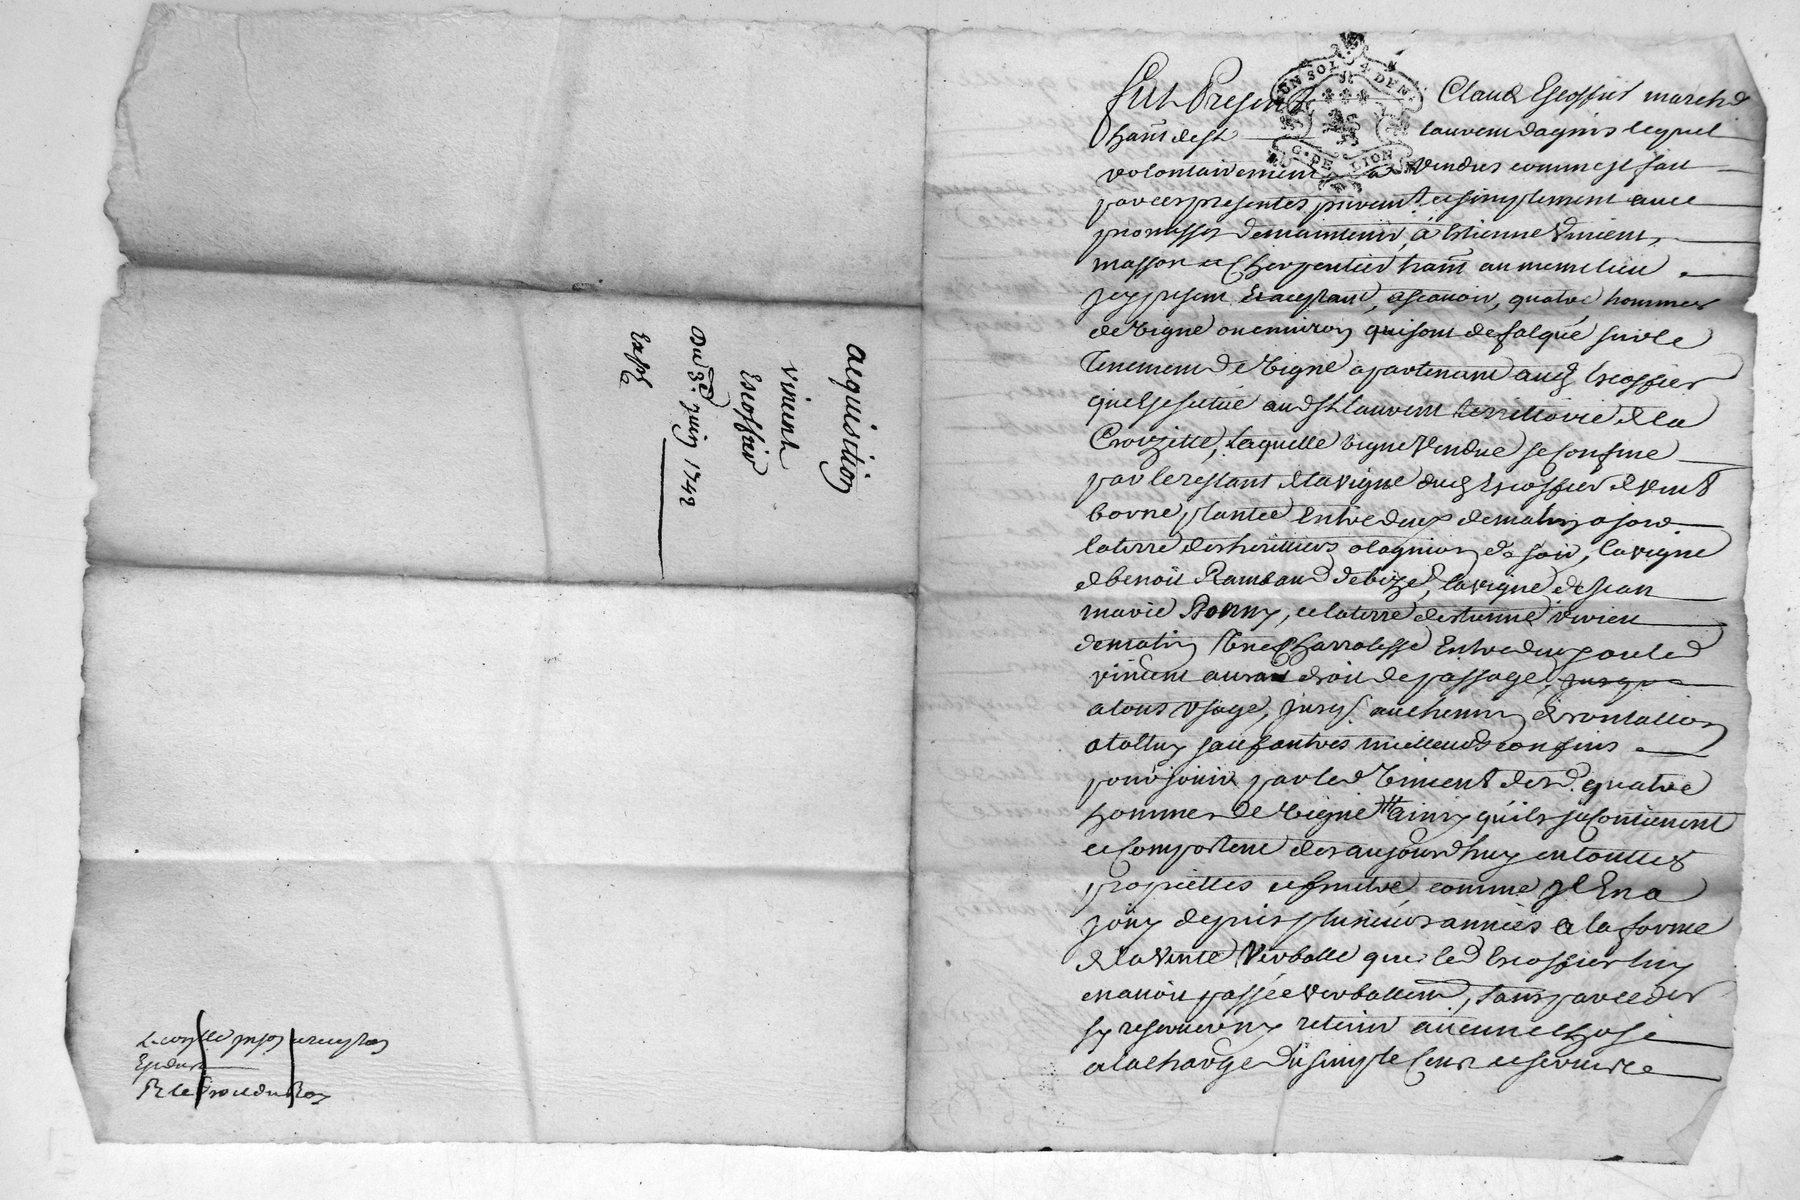 acquisition
vincent
Escoffier
Du 3e. juin 1742
Exph
R le
UN SOL 4 DEN.
G. DE LION
Fut Present Claude Escoffier march.d
han̄t de st laurent dagnis lequel
volontairement a vendus comme est fait
par ces presentes purem.t et simplement avec
promesses de maintenir, a Estienne Vincent,
masson et Charpentier han̄t au meme lieu
jcy present Et aceptant, ascavoir, quatre hommes
de Vigne ou environ qui sont desfalqué sur le
Tenement de Vigne apartenant aud. Escoffier
quest situé aud. st laurent territoire de la
Crouzette, Laquelle vigne Vendue se confine
par le restant de la vigne dud. Escoffier de vent
borne plantée Entre deux de matin a soir
la terre des heritiers olagnier de soir, la vigne
de benoit Rambaud de bize, la vigne de Jean
marie Bonny, et la terre destienne vivien
de matin Une Charratesse Entre deux ou led
vincent aura droit de passage, jusques
a tous Usage, jusq. au chemin
sauf autres meilleurs confins
pour jouir par led Vincent desd. quatre
hommes de Vigne ainsy qu'ils se contienent
et Comportent des aujourdhuy en touttes
proprietes et fruitre comme jl En a
joüy depuis plusieurs années a la forme
de la Vente Verballe que led Escoffier luy
en avoit passée verballem.t, sans par led Es
sy reserver ny retenir aucune chose
a la charge du simple Cens et servis